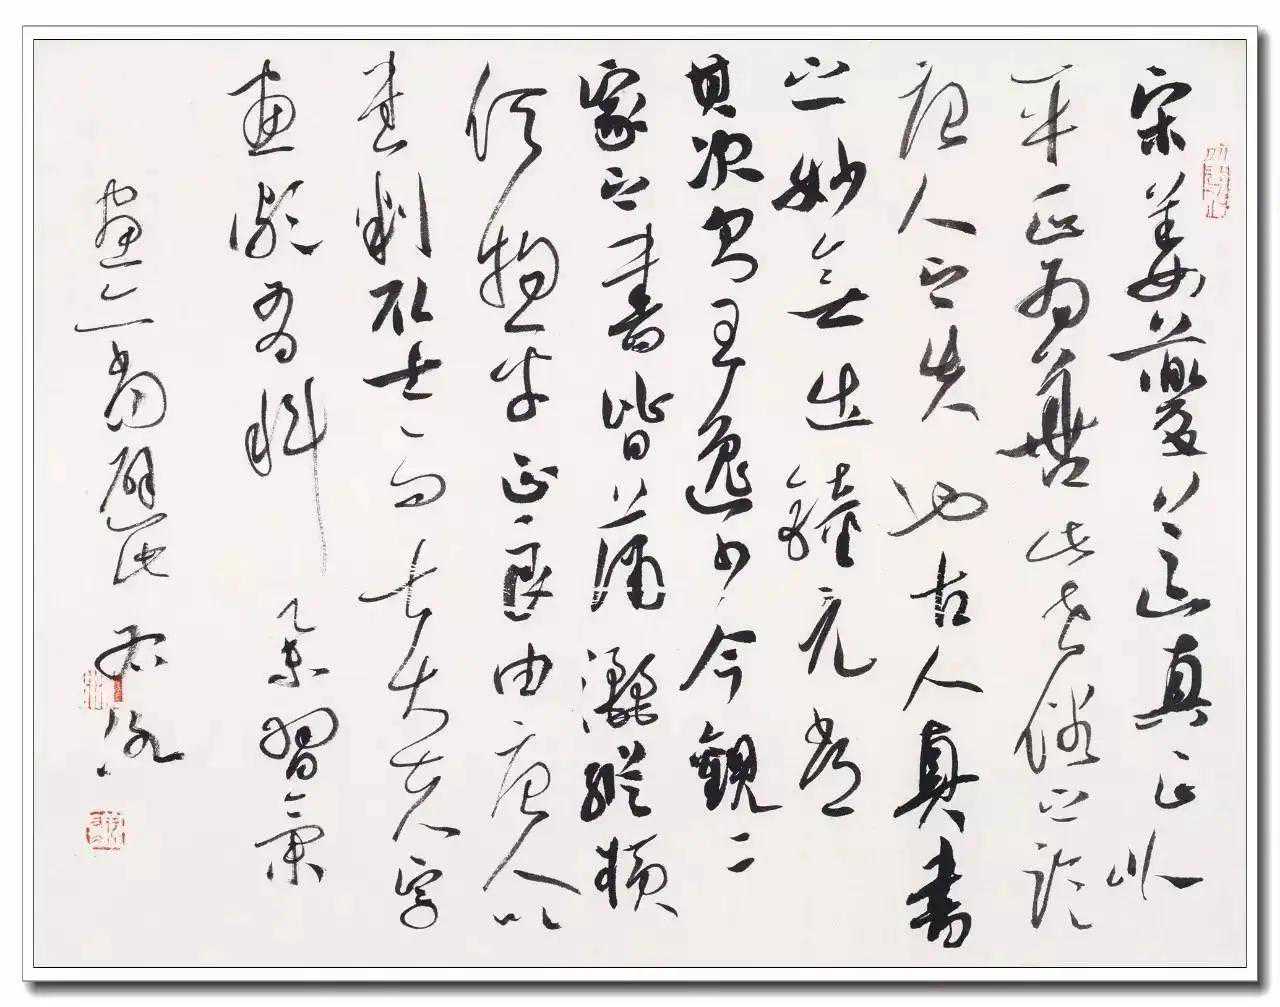 宋姜夔真书以
平正為善此世俗之論
唐人之失也古人真書
之妙無出鍾元常
其次則王逸少今觀二
家之書皆瀟灑縱橫
何拘平正良由唐人以
書判取士而士大夫字
畫類有科舉習氣